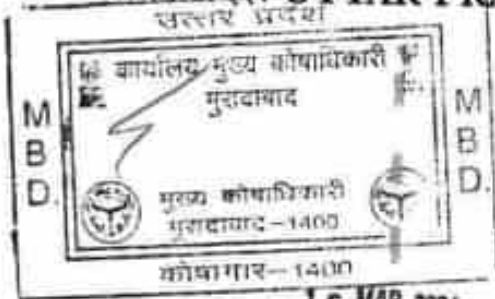 उत्तर प्रदेश
कार्यालय मुख्य कोषाधिकारी
मुरादाबाद
M
B
D.
M
B
D.
मुख्य कोषाधिकारी
मुरादाबाद-1400
कोषागार-1400
MAR